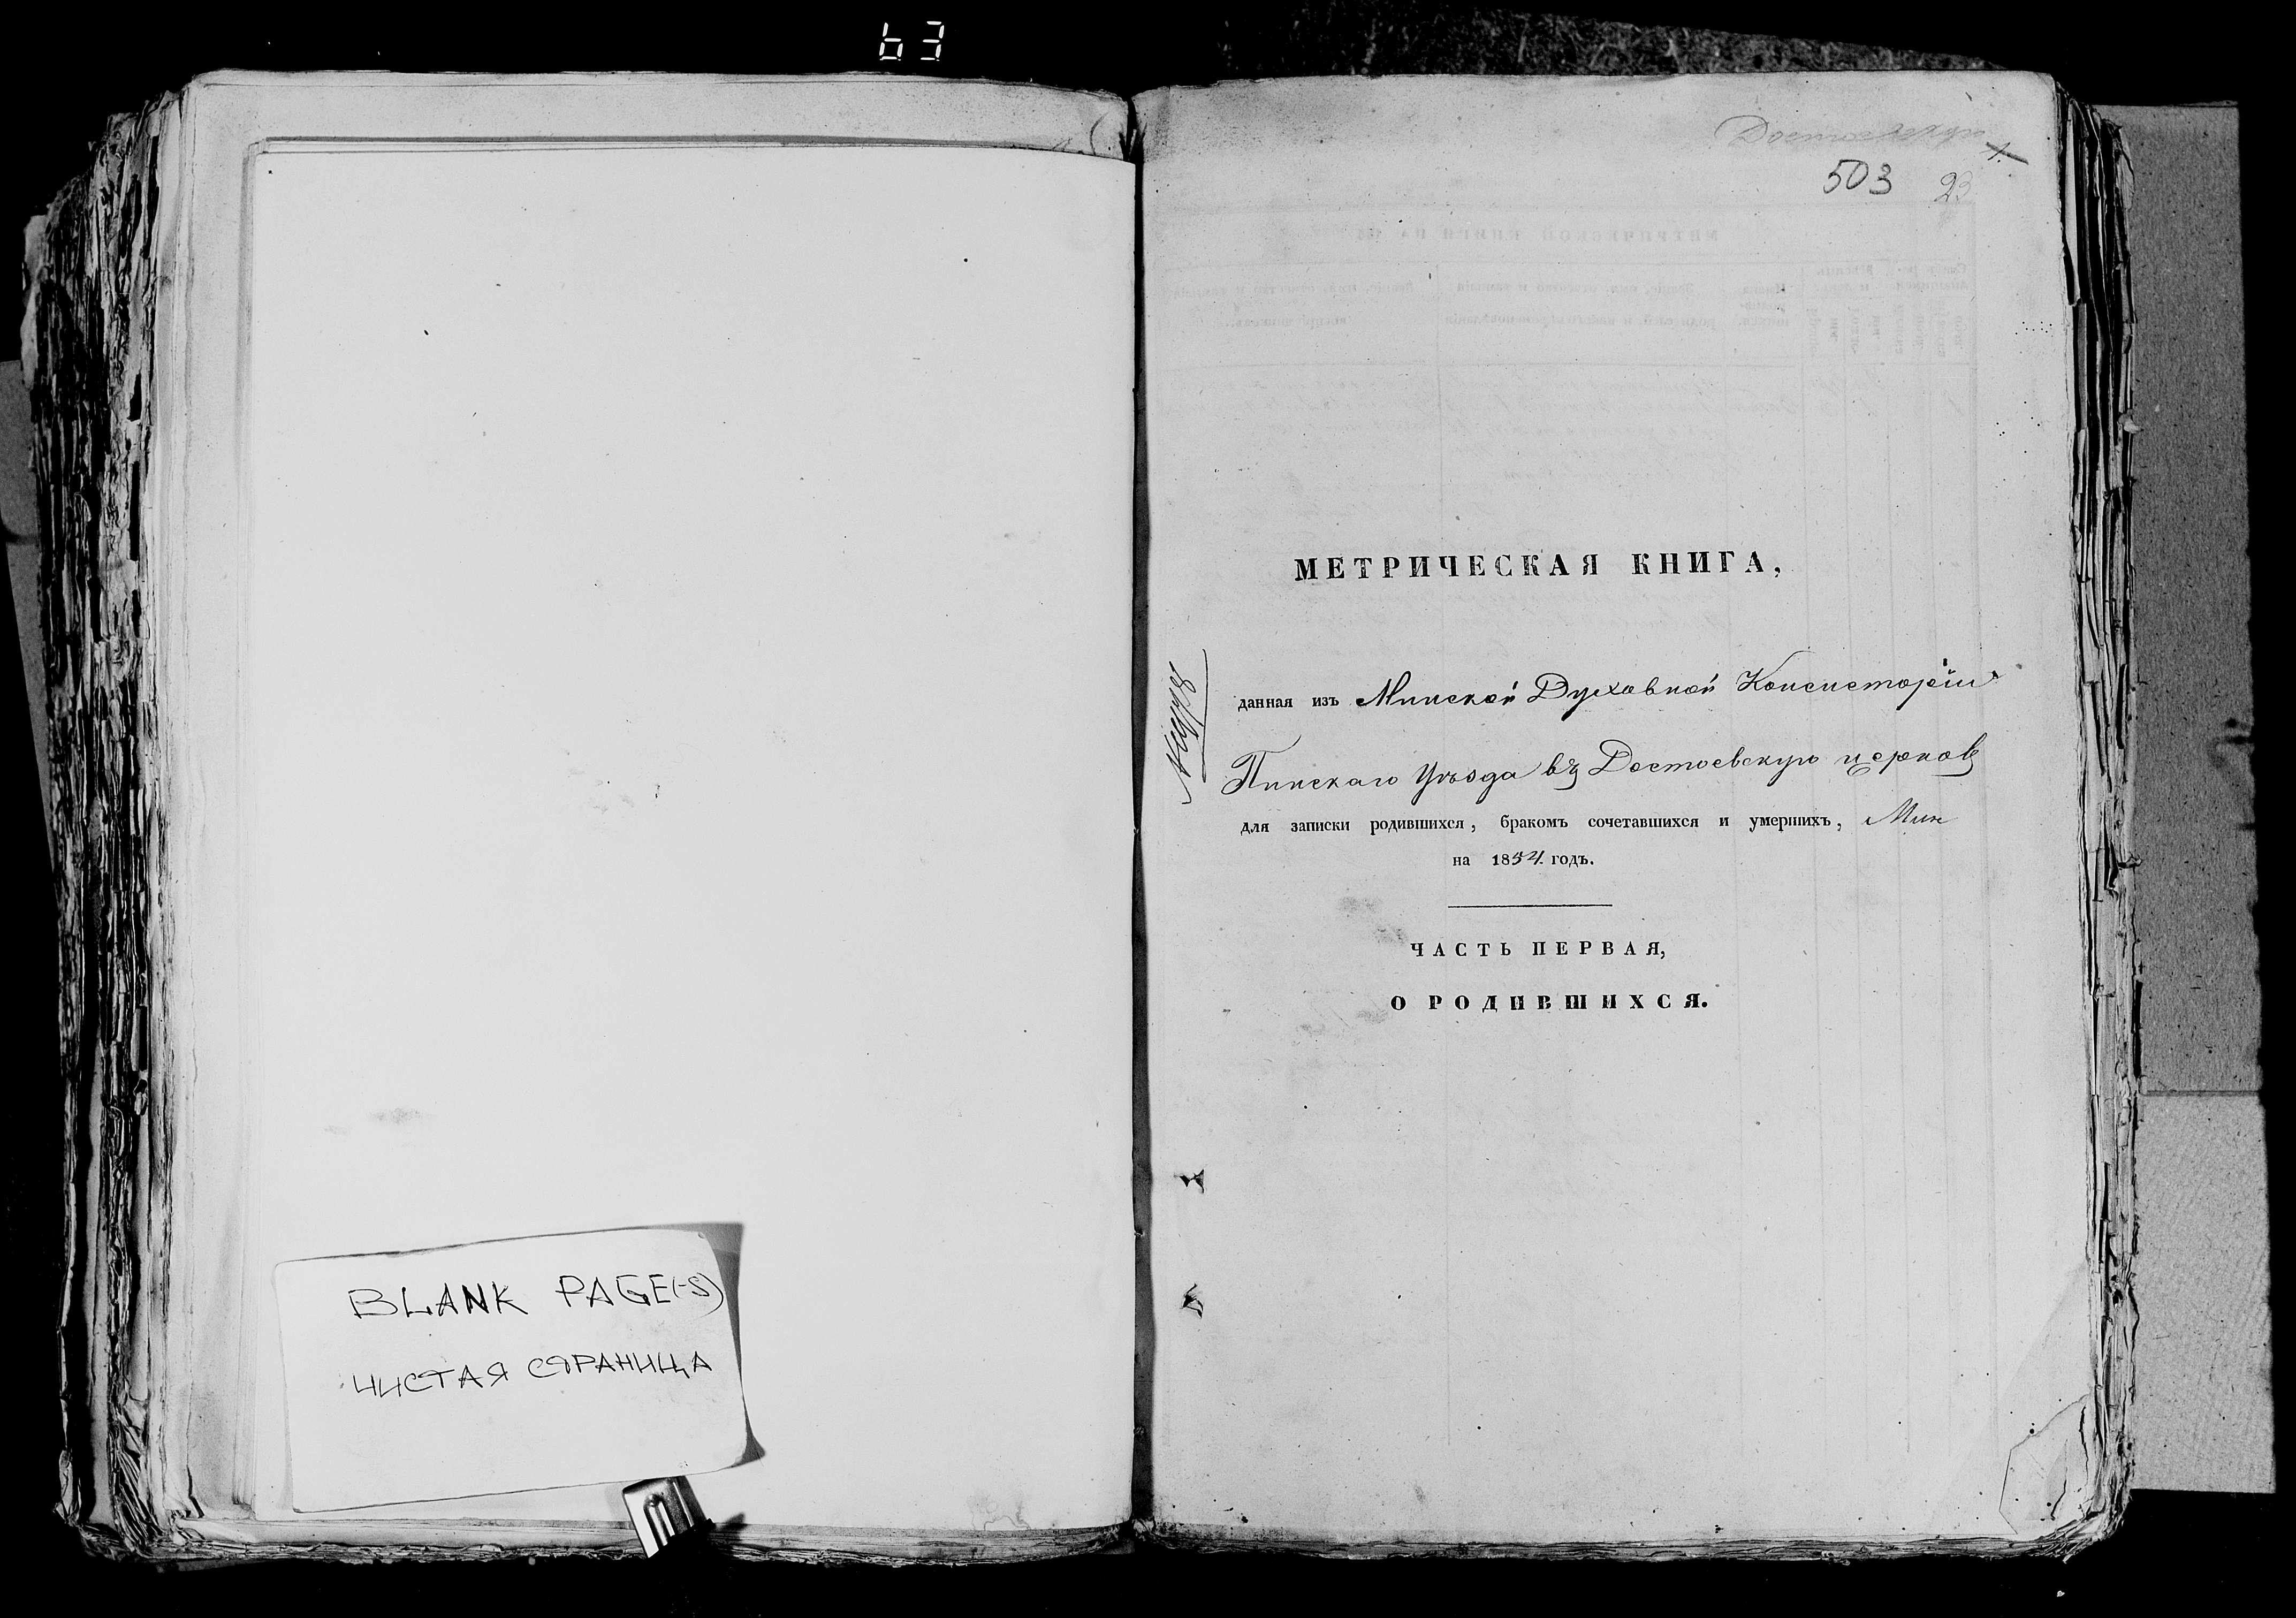 63
BLANK PAGE(-S)
ЧИСТАЯ СТРАНИЦА
Достоевскую
1.
503 23
МЕТРИЧЕСКАЯ КНИГА,
данная изъ Минской Духовной Консисторіи
Пинскаго Уѣзда въ Достоевскую церковь
для записки родившихся, бракомъ сочетавшихся и умершихъ, Мин
на 1854. годъ.
ЧАСТЬ ПЕРВАЯ,
О РОДИВШИХСЯ.